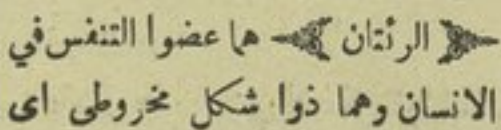 الرئتان هما عضوا التنفس في
الانسان وهما ذوا شكل مخروطى اى